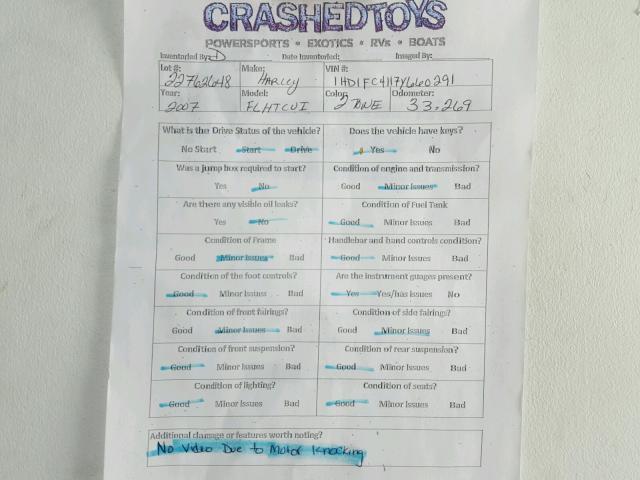 CRASHEDTOYS
POWERSPORTS • EXOTICS • RVs • BOATS
Inventoried By: D Date Inventoried: Imaged By:
Lot #: 22762648 Make: HARLEY VIN #: 1HD1FC4117Y660291
Year: 2007 Model: FLHTCUI Color: 2 TONE Odometer: 33,269
What is the Drive Status of the vehicle? Does the vehicle have keys?
No Start Start Drive Yes No
Was a jump box required to start? Condition of engine and transmission?
Yes No Good Minor Issues Bad
Are there any visible oil leaks? Condition of Fuel Tank
Yes No Good Minor Issues Bad
Condition of Frame Handlebar and hand controls condition?
Good Minor Issues Bad Good Minor Issues Bad
Condition of the foot controls? Are the instrument guages present?
Good Minor Issues Bad Yes Yes/has issues No
Condition of front fairings? Condition of side fairings?
Good Minor Issues Bad Good Minor Issues Bad
Condition of front suspension? Condition of rear suspension?
Good Minor Issues Bad Good Minor Issues Bad
Condition of lighting? Condition of seats?
Good Minor Issues Bad Good Minor Issues Bad
Additional damage or features worth noting?
No Video Due to Motor Knocking